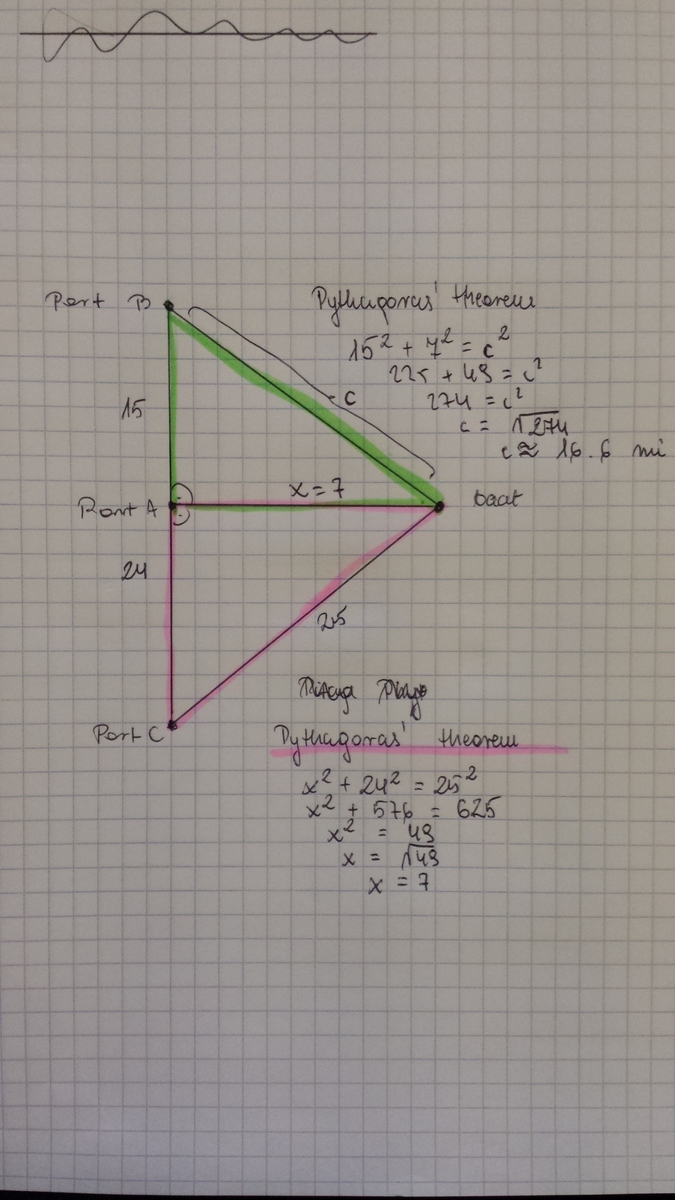 Port B
Pythagoras' theorem
15² + 7² = c²
225 + 49 = c²
15
c
274 = c²
c = √274
c ≈ 16.6 mi
x = 7
Port A
boat
24
25
Port C
Pythagoras' theorem
x² + 24² = 25²
x² + 576 = 625
x² = 49
x = √49
x = 7